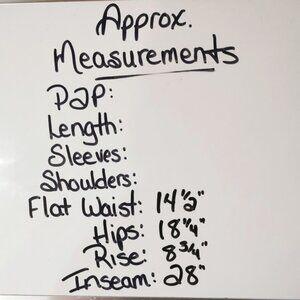 Approx.
Measurements
P2P:
Length:
Sleeves:
Shoulders:
Flat Waist: 14 1/2"
Hips: 18 1/4"
Rise: 8 3/4"
Inseam: 28"